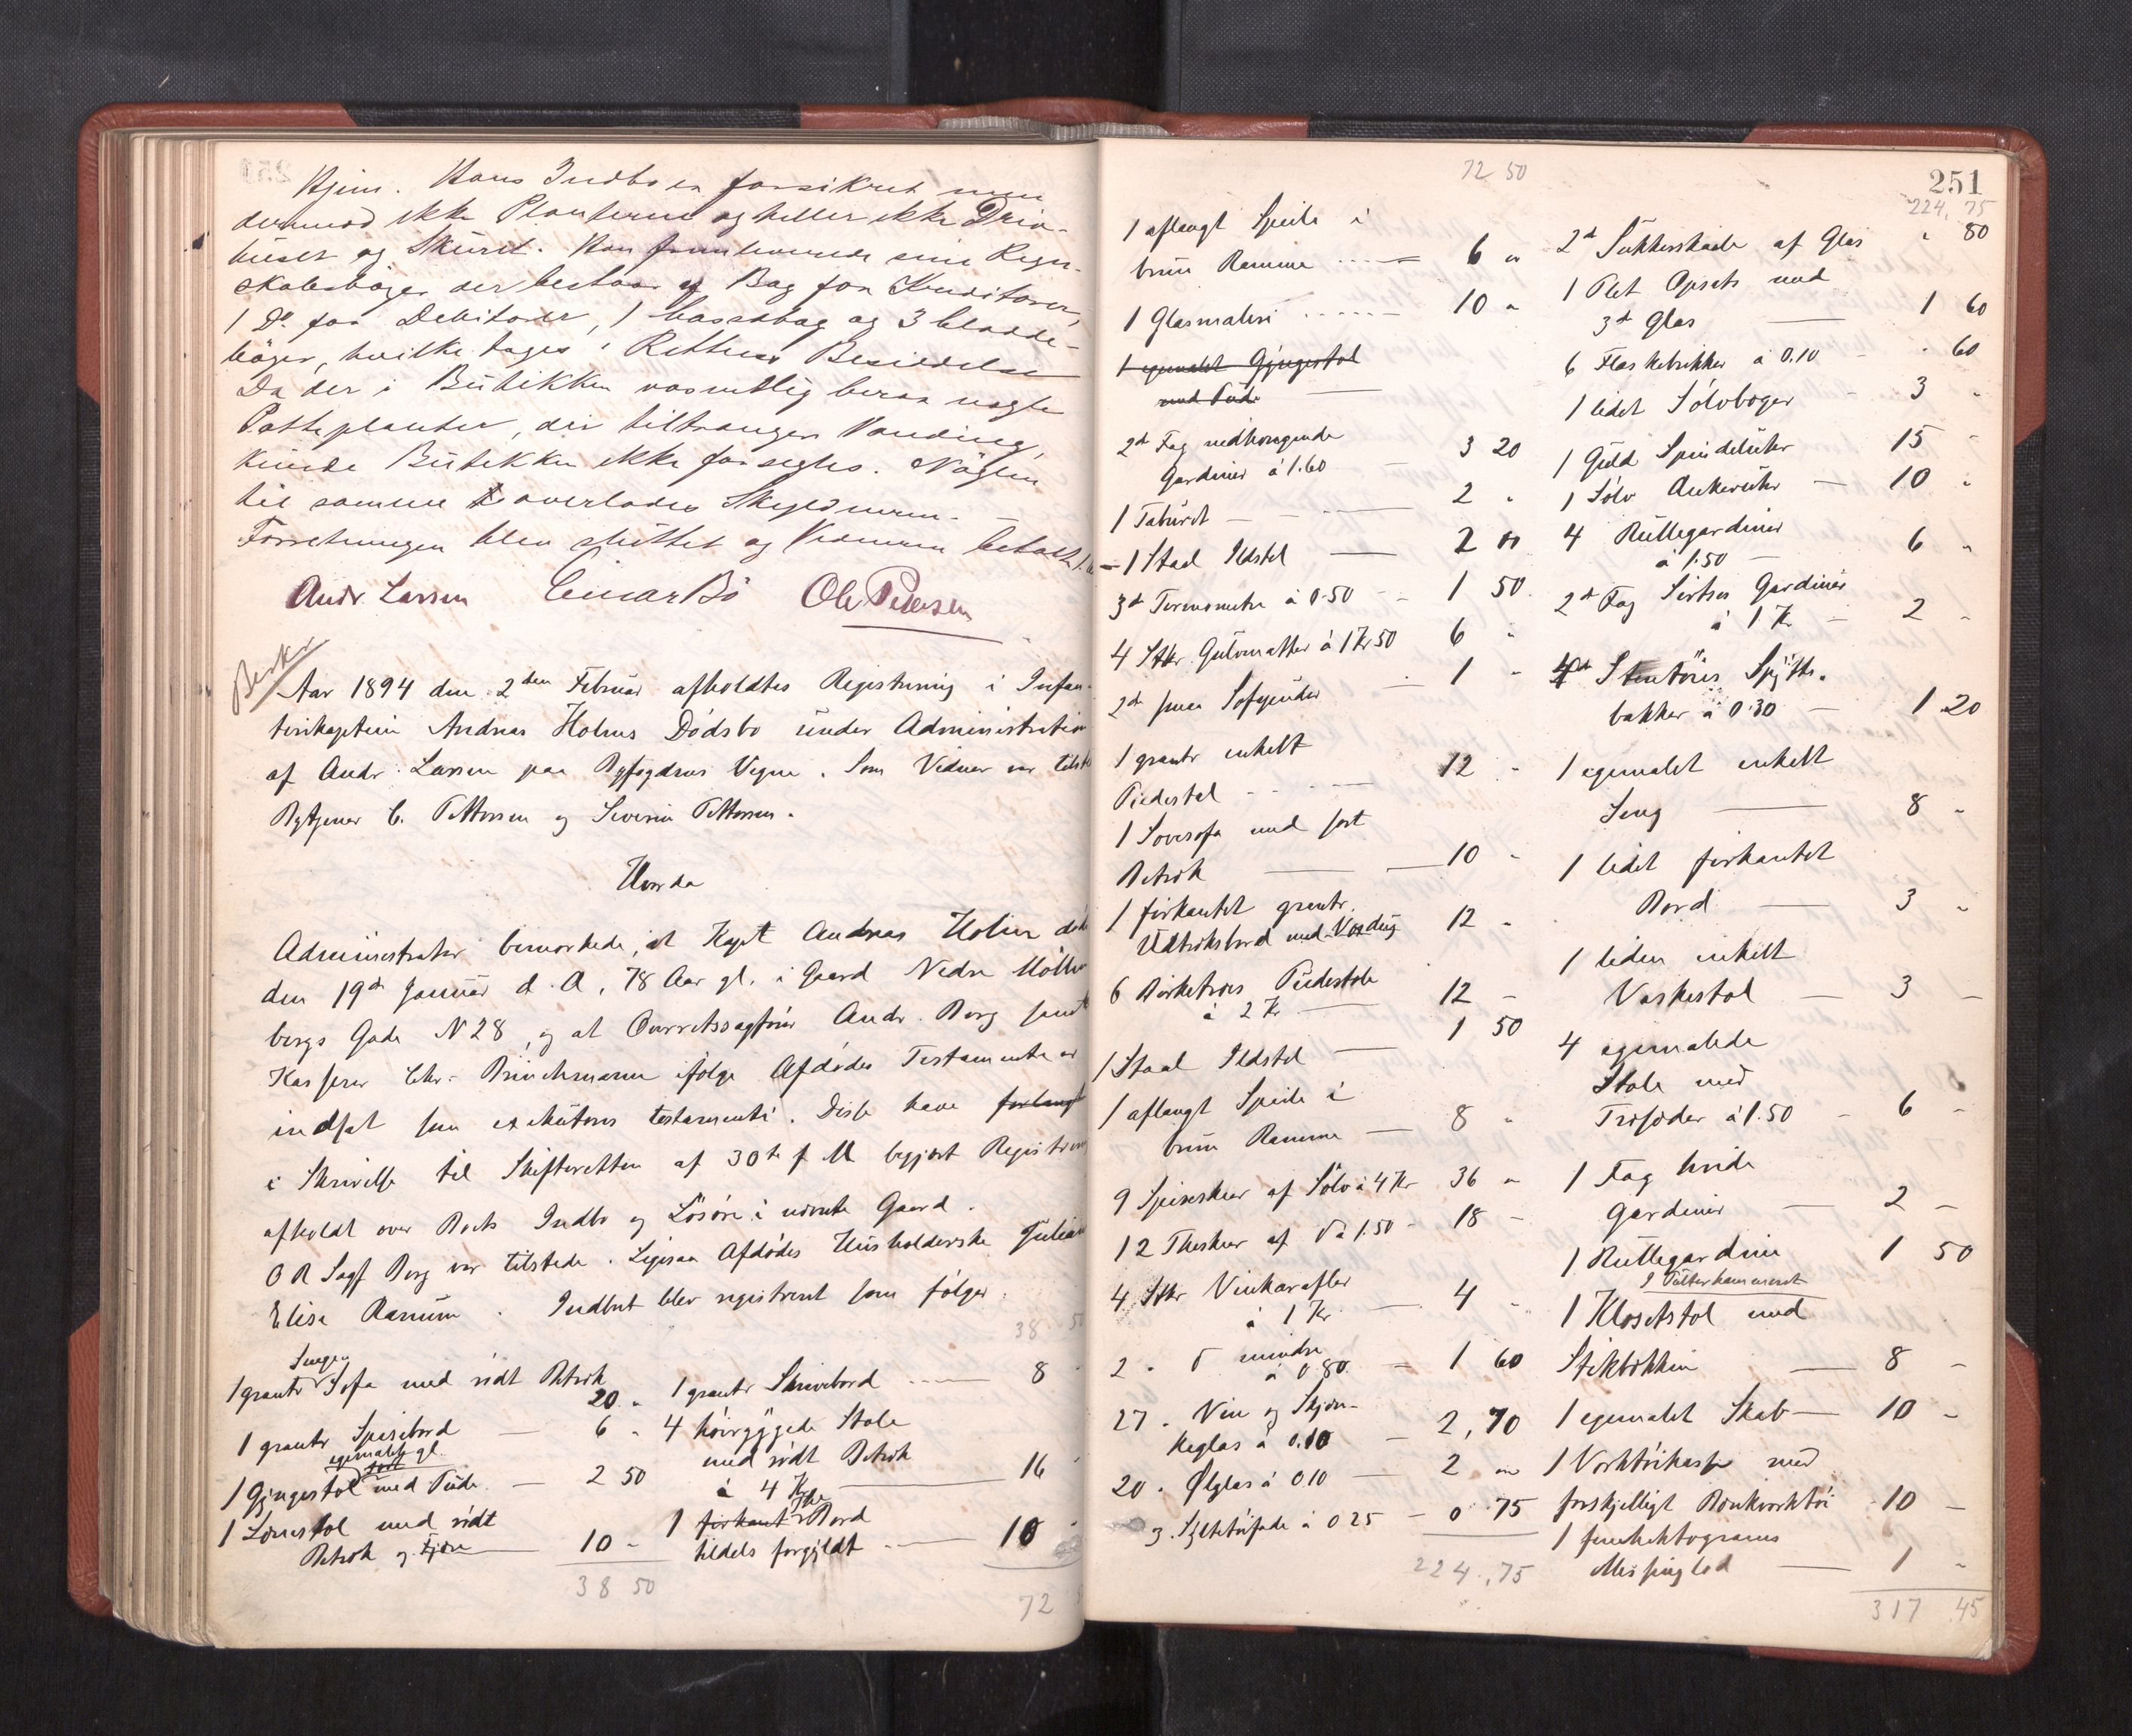 Hjem. Hans Indbo er forsikret men
derimod ikke Planterne og heller ikke Driv-
huset og Skuret. Han fremleverede sine Regn-
skabsbøger der bestaar af Bog for Kreditorer,
1 Do. for Debitorer, 1 Cassabog og 3 kladde-
bøger, hvilke toges i Rettens Besiddelse
Da der i Butikken var
Potteplanter, der tiltrænger Vanding,
kunde Butikken ikke forsegles. Nøglen
til samme overlodes Skyldneren. —
Forretningen blev sluttet og Vidnerne betalt
Andr. Larsen Einar Bö Ole Pedersen
Aar 1894 den 2den Februar afholdtes Registrering i Infan-
terikaptein Andreas Holms Dödsbo under Administration
af Andr. Larsen paa Byfogdens Vegne. Som Vidner var tilstede
Bytjener C. Pettersen og Severin Pettersen.
Hvorda
Administrator bemærkede, at Kapt Andreas Holm døde
den 19de Januar d. A., 78 Aar gl. i Gaard Nedre Möllen-
bergs Gade N 28, og at Overretssagfører Andr. Berg samt
Kasserer Chr. Brinchmann ifølge Afdødes Testamente er
indsat som exekutores testamenti. Disse have forlangt
i Skrivelse til Skifteretten af 30te f M begjært Registrering
afholdt over Boets Indbo og Lösöre i nævnte Gaard.
O R Sagf Berg var tilstede. Ligesaa Afdødes Husholderske Juliane
Elise Ranum. Indboet blev registreret som følger.
38 50
Stuen
1 grantr Sofa med rödt Betræk 20 "
1 grantr Spisebord — 6 "
egemalet gl.
1 Gyngestol med Pude — 2 50
1 Lænestol med rödt
Betræk og Fjære — 10 "
38 50
1 grantr Skrivebord ---- 8 "
4 høirygggede Stole
med rödt Betræk
à 4 Kr — 16 "
1 firkant The Bord
tildels forgyldt ---- 10 "
72
72 50
1 aflangt Speile i
brun Ramme ---- 6 "
1 Glasmaleri ------ 10 "
1 egemalet Gyngestol
med Pude —
2de Fag nedhængende
Gardiner à 1.60 — 3 20
1 Taburet — 2 "
1 Stad Ildstel — 2 "
3de Termometre à 0.50 - 1 50
4 Stkr. Gulvmatter à 1 Kr 50 6 "
2de smaa Sofapuder — 1 "
1 grantr enkelt
Piedestal ---- 12 "
1 Sovesofa med sort
Betræk — 10 "
1 firkantet grantr.
Udtræksbord med Voxdug 12 "
6 Birketræs Pindestole
à 2 Kr — 12 "
1 Staal Ildstel — 1 50
1 aflangt Speile i
brun Ramme — 8 "
9 Spiseskeer af Sölv à 4 Kr 36 "
12 Theskeer af Do à 1.50 - 18 "
4 Stkr Vinkarafler
à 1 Kr. — 4 "
2 " Do mindre
à 0.80. — 1 60
27 " Vin og Skjæn-
keglas à 0.10 — 2,70
20 " Ølglas à 0 10 — 2 "
3. Syltetøifade à 0 25 — 0 75
224.,75
251
224, 75
2de Sukkerskaale af Glas " 80
1 Plet Opsats med
3de Glas — 1 60
6 Flaskebrikker à 0.10 - " 60
1 lidet Sölvbæger - 3 "
1 Guld Spindeluhr 15 "
1 Sölv Ankeruhr — 10 "
4 Rullegardiner
à 1.50 — 6 "
2de Fag Sirtses Gardiner
à 1 Kr — 2 "
4de Stentöies Spytte-
bakker à 0.30 — 1 20
1 egemalet enkelt
Seng — 8 "
1 lidet firkantet
Bord — 3 "
1 liden enkelt
Vaskestol — 3 "
4 egemalede
Stole med
Træsæder à 1.50 - 6 "
1 Fag hvide
Gardiner — 2 "
1 Rullegardin 1 50
I Pulterkammeret
1 Klosetstol med
Stikbækken — 8 "
1 egemalet Skab — 10 "
1 Værktöikasse med
forskjelligt Brukværktöi 10 "
1 femhektograms
Messinglod — 1 "
317.45